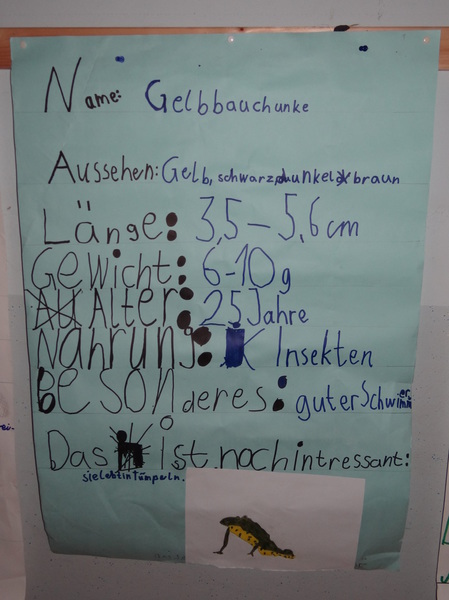 Name: Gelbbauchunke
Aussehen: Gelb, schwarz, dunkel braun
Länge: 3,5 – 5,6 cm
Gewicht: 6-10 g
Alter: 25 Jahre
Nahrung: Insekten
Besonderes: guter Schwimmer
Das ist noch intressant:
sie lebt in Tümpeln.